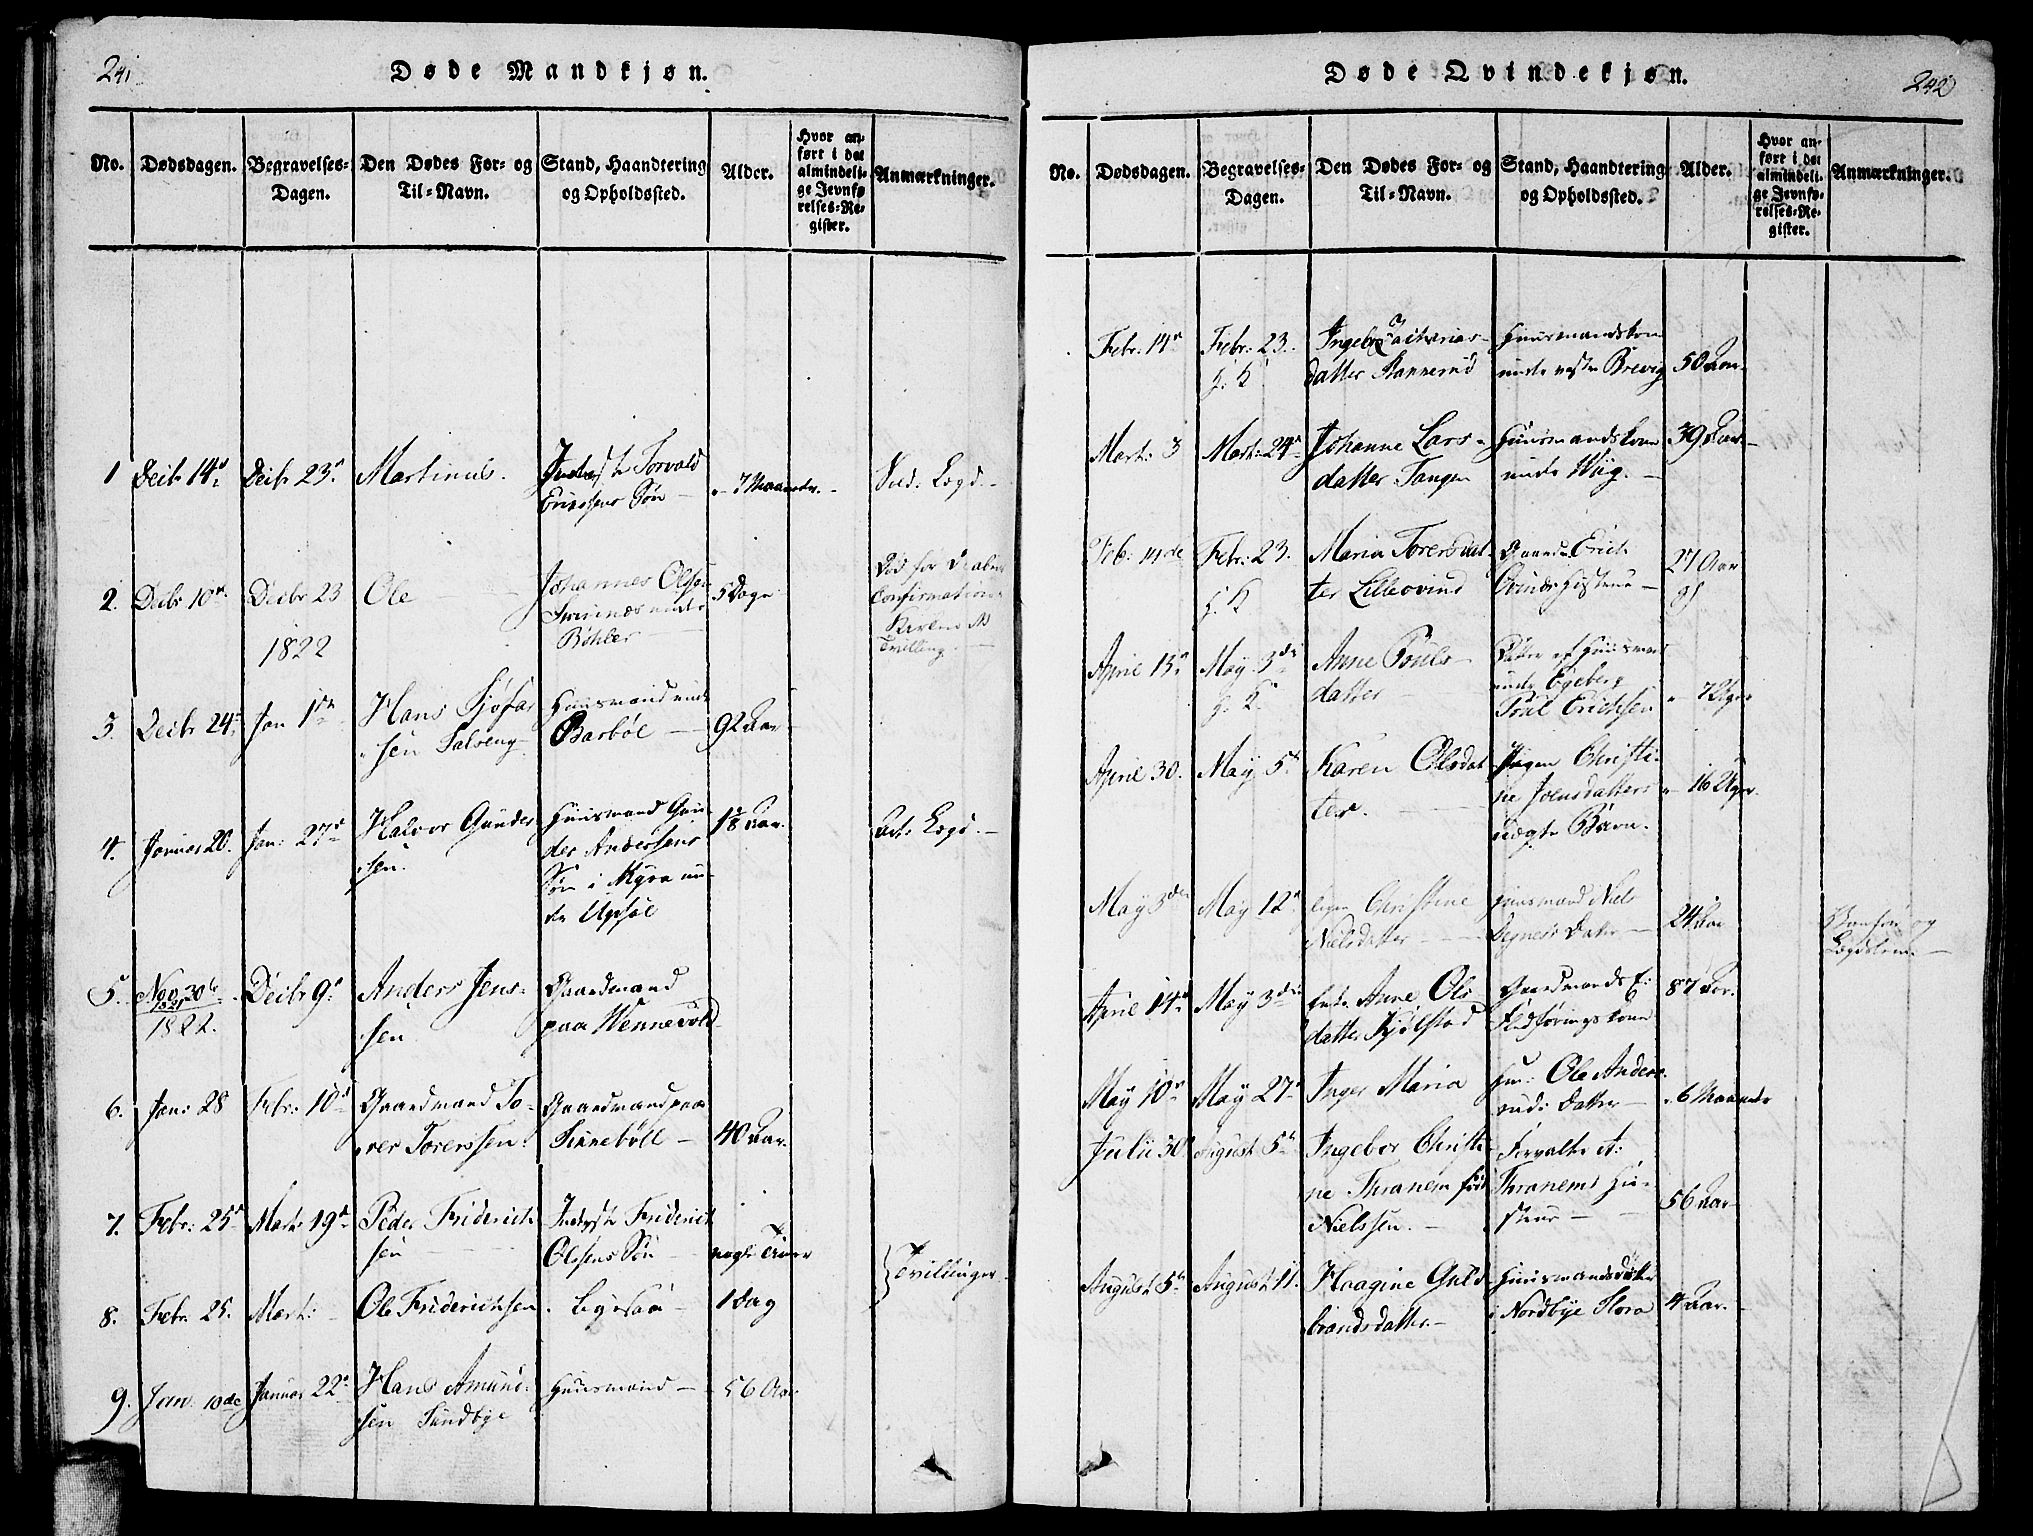 241
Døde Mandkjøn.
No.
Dødsdagen.
Begravelses-
Dagen.
Den Dødes For- og
Til-Navn.
Stand, Haandtering
og Opholdssted.
Alder.
Hvor an-
ført i det
almindeli-
ge Jevnfø-
relses-Re-
gister.
Anmærkninger.
1
Decbr 14d
Decbr 23d
Martinus.
Torvald
Søn
7 Maaneder.
Logd.
2.
Decbr 10d
Decbr 23
1822
Ole
Johannes Olsen
under
Bøhler
5 Dage
Død før
Confirmation
Tvilling.
3.
Decbr 24
Jan 1ste
Hans
sen
Huusmand under
Barbøl
92 Aar
4.
Januar 20.
Jan: 27d
Halvor Gunder-
sen.
Huusmand Gun-
der Andersens
Søn i Myra un-
der Upsøl
1 1/8 Aar.
Logd.
5.
Nov 30te
1822.
Decbr 9d
Anders Jens-
sen
Gaardmand
paa Wennevold
6.
Jan: 28
Febr: 10d
Gaardmand To-
rer Torerssen
Gaardmand paa
Sinnebøll
40 Aar.
7.
Febr: 25d
Mart: 19d
Peder Friderich-
sen
Inderste Friderich
Olsens Søn
nogle Timer
8.
Febr. 25.
Mart:
Ole Friderichsen.
1 Dag
Tvillinger
9.
Jan 10de
Januar 22d
Hans Amund-
sen Sundbye
Huusmand
56 Aar
242
Døde Qvindekjøn.
No.
Dødsdagen.
Begravelses-
Dagen.
Den Dødes For- og
Til-Navn.
Stand, Haandtering
og Opholdssted.
Alder.
Hvor an-
ført i det
almindeli-
ge Jevnfø-
relses-Re-
gister.
Anmærkninger.
Febr. 14d
Febr: 23.
H. K
Ingebor Zacharias-
datter
Huusmandskone
under vestre Brevig
50 Aar
Mart: 3
Mart: 24d
Johanne Lars-
datter Tangen
Huusmandskone
under Wiig.
39 Aar
Feb: 14de
Febr: 23.
H. K
Maria Torersdat-
ter Lilleovind
Gaardm. Erich
Ovinds Hustrue
27 Aar
April 13d
May 3die
H. K.
Anne Pouls-
datter
Datter af Huusmand
under Egeberg
Poul Erichsen
7 Uger
April 30.
May 5te
Karen Olsdat-
ter.
Pigen Christi-
ne Joensdatters
uægte Barn.
16 Uger.
May 3die
May 12d
Pigen Christine
Nielsdatter
Huusmand Niels
Datter
24 Aar
og
April 14d
May 3die
Enke Anne Ols-
datter Kjølstad
Gaardmands
Flodføringskone
87 Aar.
May 10d
May 27d
Inger Maria
Huu: Ole Anders-
ruds Datter
6 Maaneder
Julii 30
August 5te
Ingebor Christi-
ne Thranem fød
Nielssen.
Forvalter A:
Thranems Hu-
strue
56 Aar
August 5te
August 11.
Haagine Guld-
brandsdatter
Huusmandsdatter
i Nordbye Flora
4 Aar.